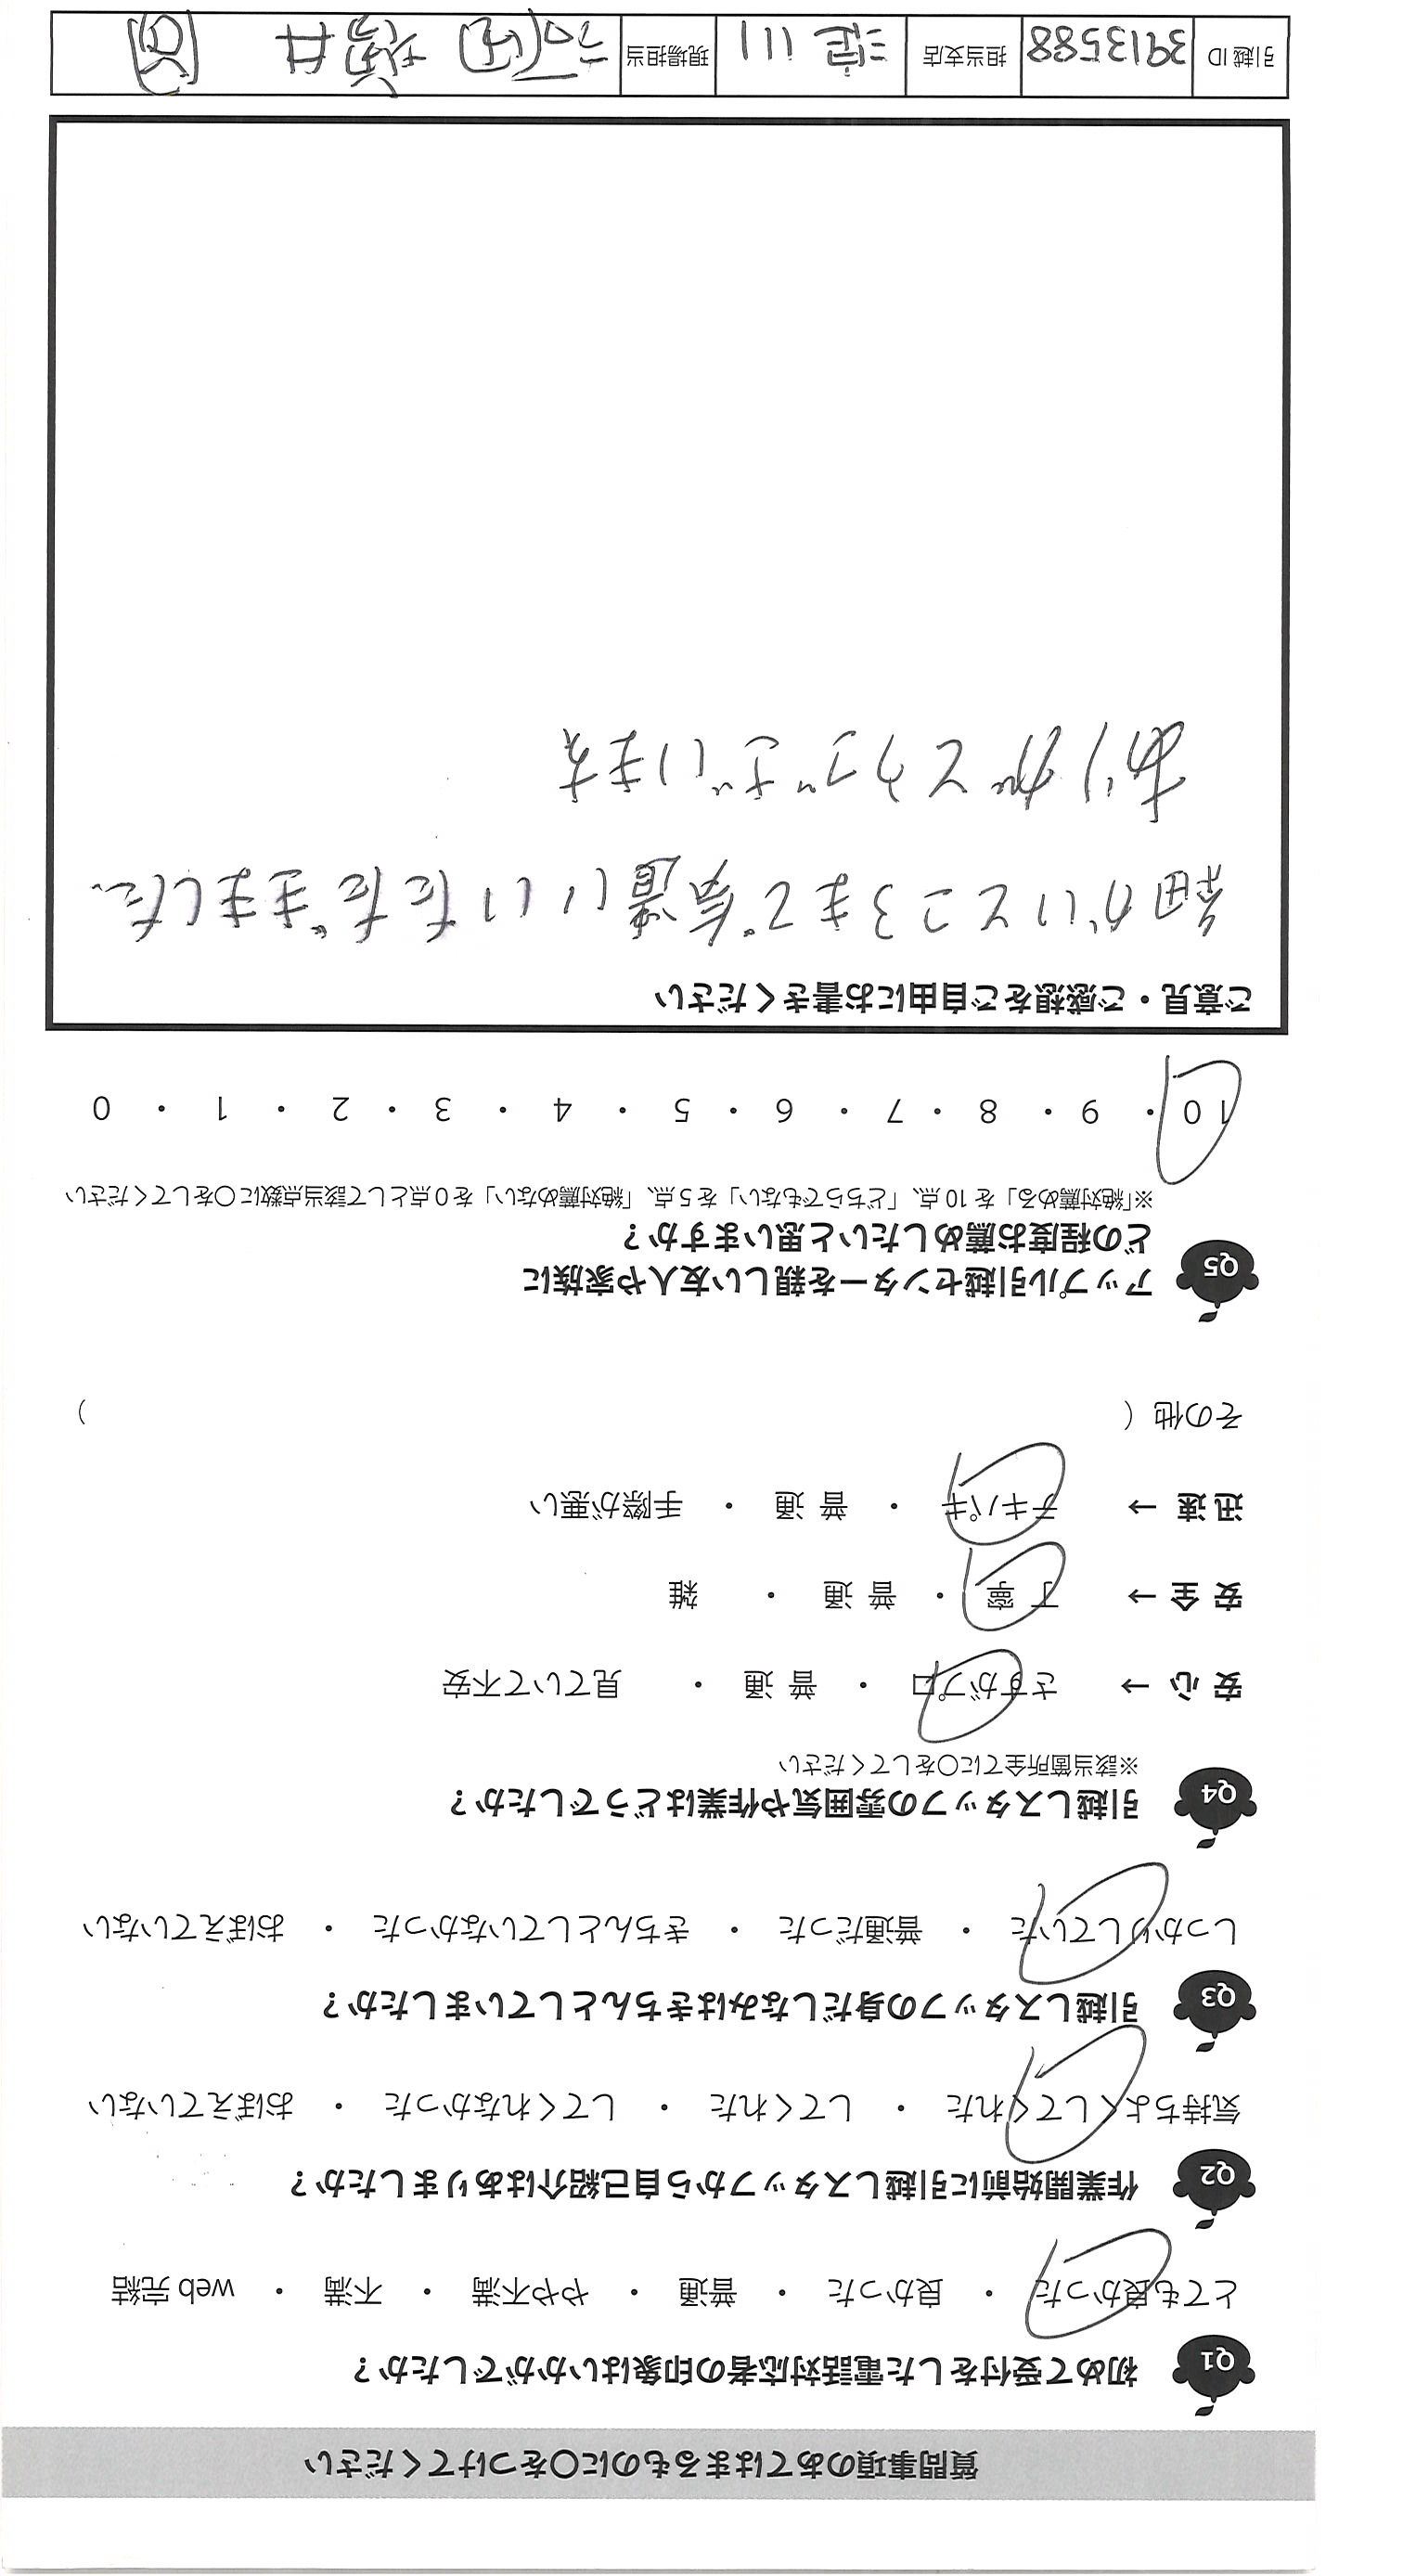 質問事項のあてはまるものに〇をつけてください
Q1 初めて受付をした電話対応者の印象はいかがでしたか？
とても良かった ・ 良かった ・ 普通 ・ やや不満 ・ 不満 ・ web 完結
Q2 作業開始前に引越しスタッフから自己紹介はありましたか？
気持ちよくしてくれた ・ してくれた ・ してくれなかった ・ おぼえていない
Q3 引越しスタッフの身だしなみはきちんとしていましたか？
しっかりしていた ・ 普通だった ・ きちんとしていなかった ・ おぼえていない
Q4 引越しスタッフの雰囲気や作業はどうでしたか？
※該当箇所全てに〇をしてください
安 心 → さすがプロ ・ 普 通 ・ 見ていて不安
安 全 → 丁 寧 ・ 普 通 ・ 雑
迅 速 → テキパキ ・ 普 通 ・ 手際が悪い
その他 （ ）
Q5 アップル引越センターを親しい友人や家族に
どの程度お薦めしたいと思いますか？
※「絶対薦める」を 10 点、「どちらでもない」を 5 点、「絶対薦めない」を 0 点として該当点数に〇をしてください
10 ・ 9 ・ 8 ・ 7 ・ 6 ・ 5 ・ 4 ・ 3 ・ 2 ・ 1 ・ 0
ご意見・ご感想をご自由にお書きください
細かいところまで気遣いいただきました。
ありがとうございます
引越 ID 3913588 担当支店 淀川 現場担当